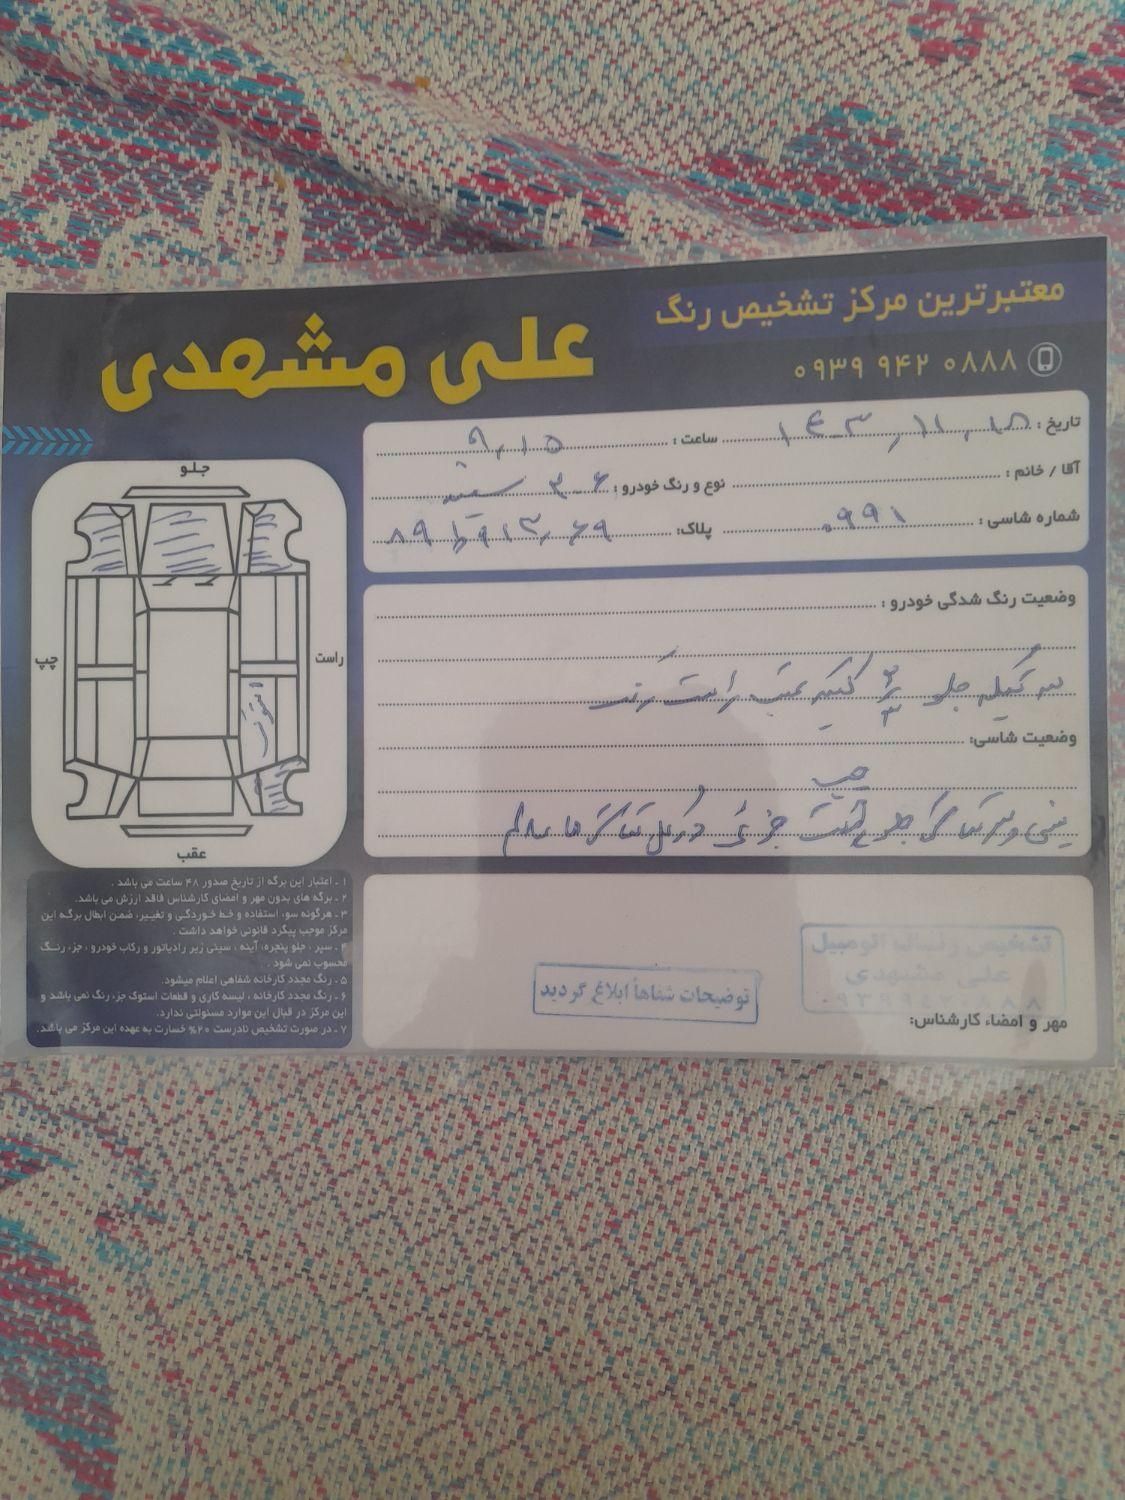 معتبرترین مرکز تشخیص رنگ
علی مشهدی
۰۹۳۹ ۹۴۲ ۰۸۸۸
تاریخ : ۱۴۰۳,۱۱,۱۸ ساعت : ۹,۱۵
آقا / خانم : نوع و رنگ خودرو : ۲۰۶ سفید
شماره شاسی : ۰۹۹۱ پلاک:
وضعیت رنگ شدگی خودرو :
سه تیکه جلو گلگیر عقب راست رنگ
وضعیت شاسی:
چپ
سینی و سر شاسی جلو جزئی شاسی ها سالم
جلو
چپ
راست
عقب
۱ - اعتبار این برگه از تاریخ صدور ۴۸ ساعت می باشد .
۲ - برگه های بدون مهر و امضای کارشناس فاقد ارزش می باشد.
۳ - هرگونه سوء استفاده و خط خوردگی و تغییر، ضمن ابطال برگه این
مرکز موجب پیگرد قانونی خواهد داشت .
۴ - سپر ، جلو پنجره، آینه ، سینی زیر رادیاتور و رکاب خودرو ، جزء رنگ
محسوب نمی شود .
۵ - رنگ مجدد کارخانه شفاهی اعلام میشود.
۶ - رنگ مجدد کارخانه ، لیسه کاری و قطعات استوک جزء رنگ نمی باشد و
این مرکز در قبال این موارد مسئولتی ندارد.
۷ - در صورت تشخیص نادرست ۲۰% خسارت به عهده این مرکز می باشد.
تشخیص رنگ اتومبیل
علی مشهدی
۰۹۳۹۹۴۲۰۸۸۸
توضیحات شفاهاً ابلاغ گردید
مهر و امضاء کارشناس: